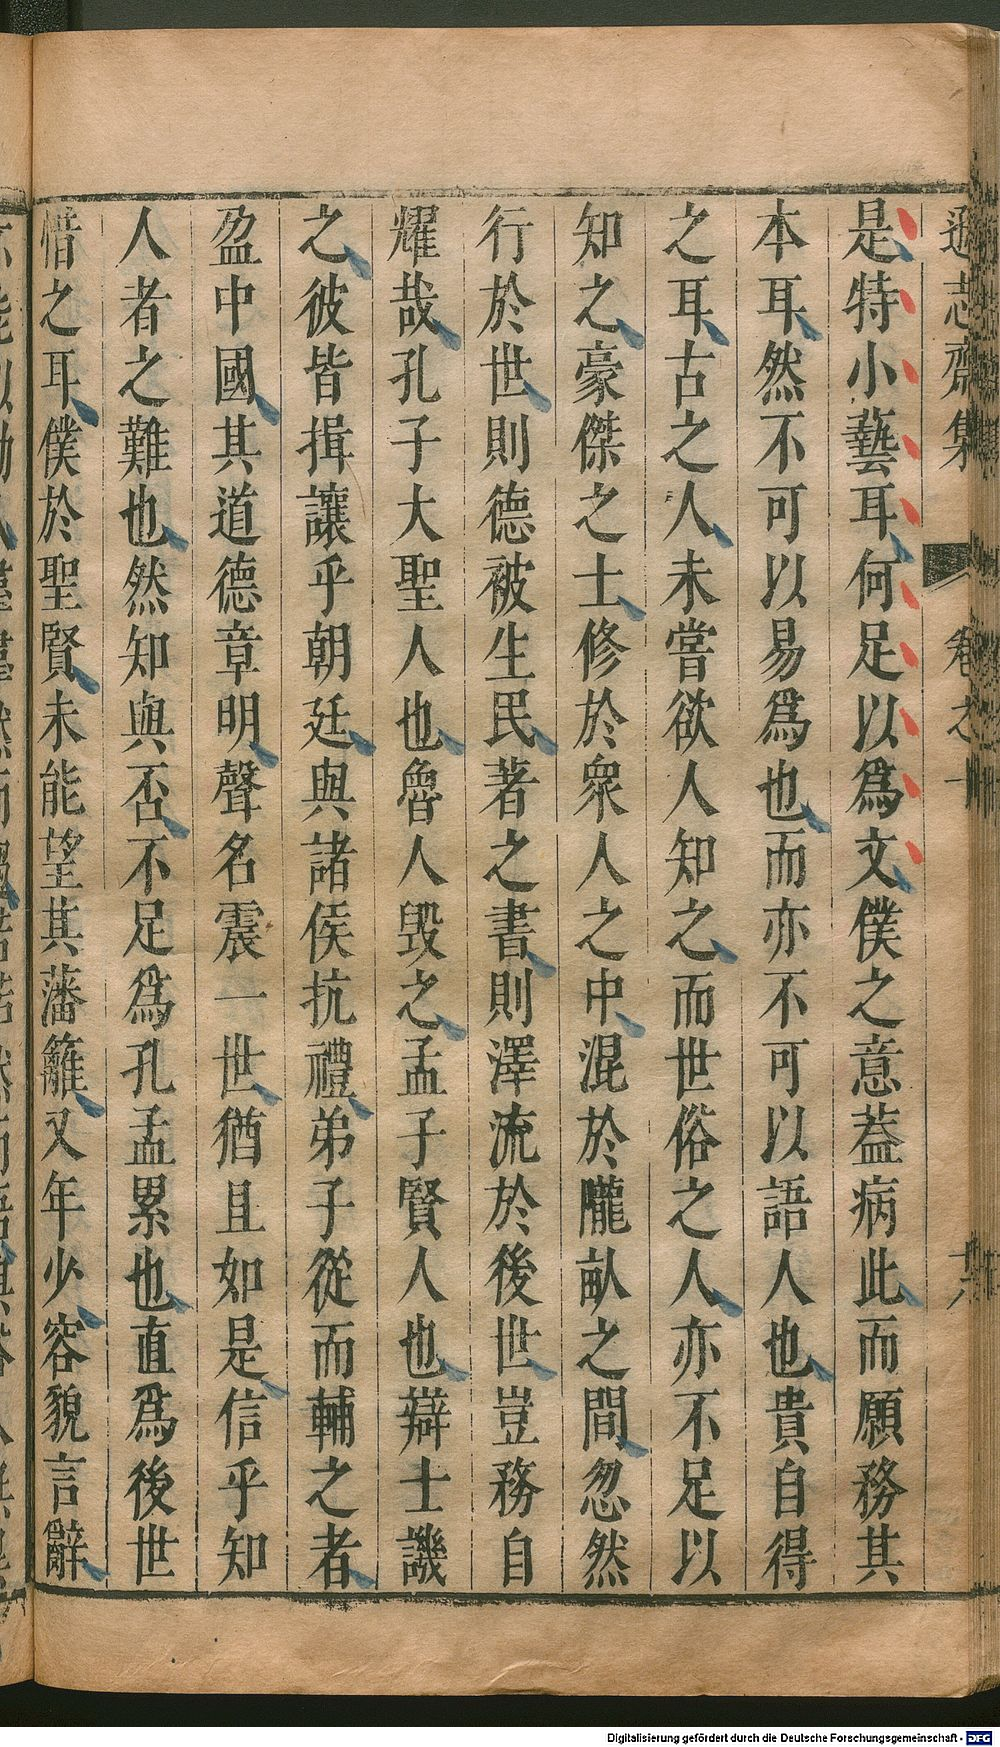 遜志齋集 卷之十 十六
是特小藝耳何足以爲文僕之意蓋病此而願務其
本耳然不可以易爲也而亦不可以語人也貴自得
之耳古之人未嘗欲人知之而世俗之人亦不足以
知之豪傑之士修於衆人之中混於隴畝之間忽然
行於世則德被生民著之書則澤流於後世豈務自
耀哉孔子大聖人也魯人毀之孟子賢人也辯士譏
之彼皆揖讓乎朝廷與諸侯抗禮弟子從而輔之者
盈中國其道德章明聲名震一世猶且如是信乎知
人者之難也然知與否不足爲孔孟累也直爲後世
惜之耳僕於聖賢未能望其藩籬又年少容貌言辭
Digitalisierung gefördert durch die Deutsche Forschungsgemeinschaft - DFG